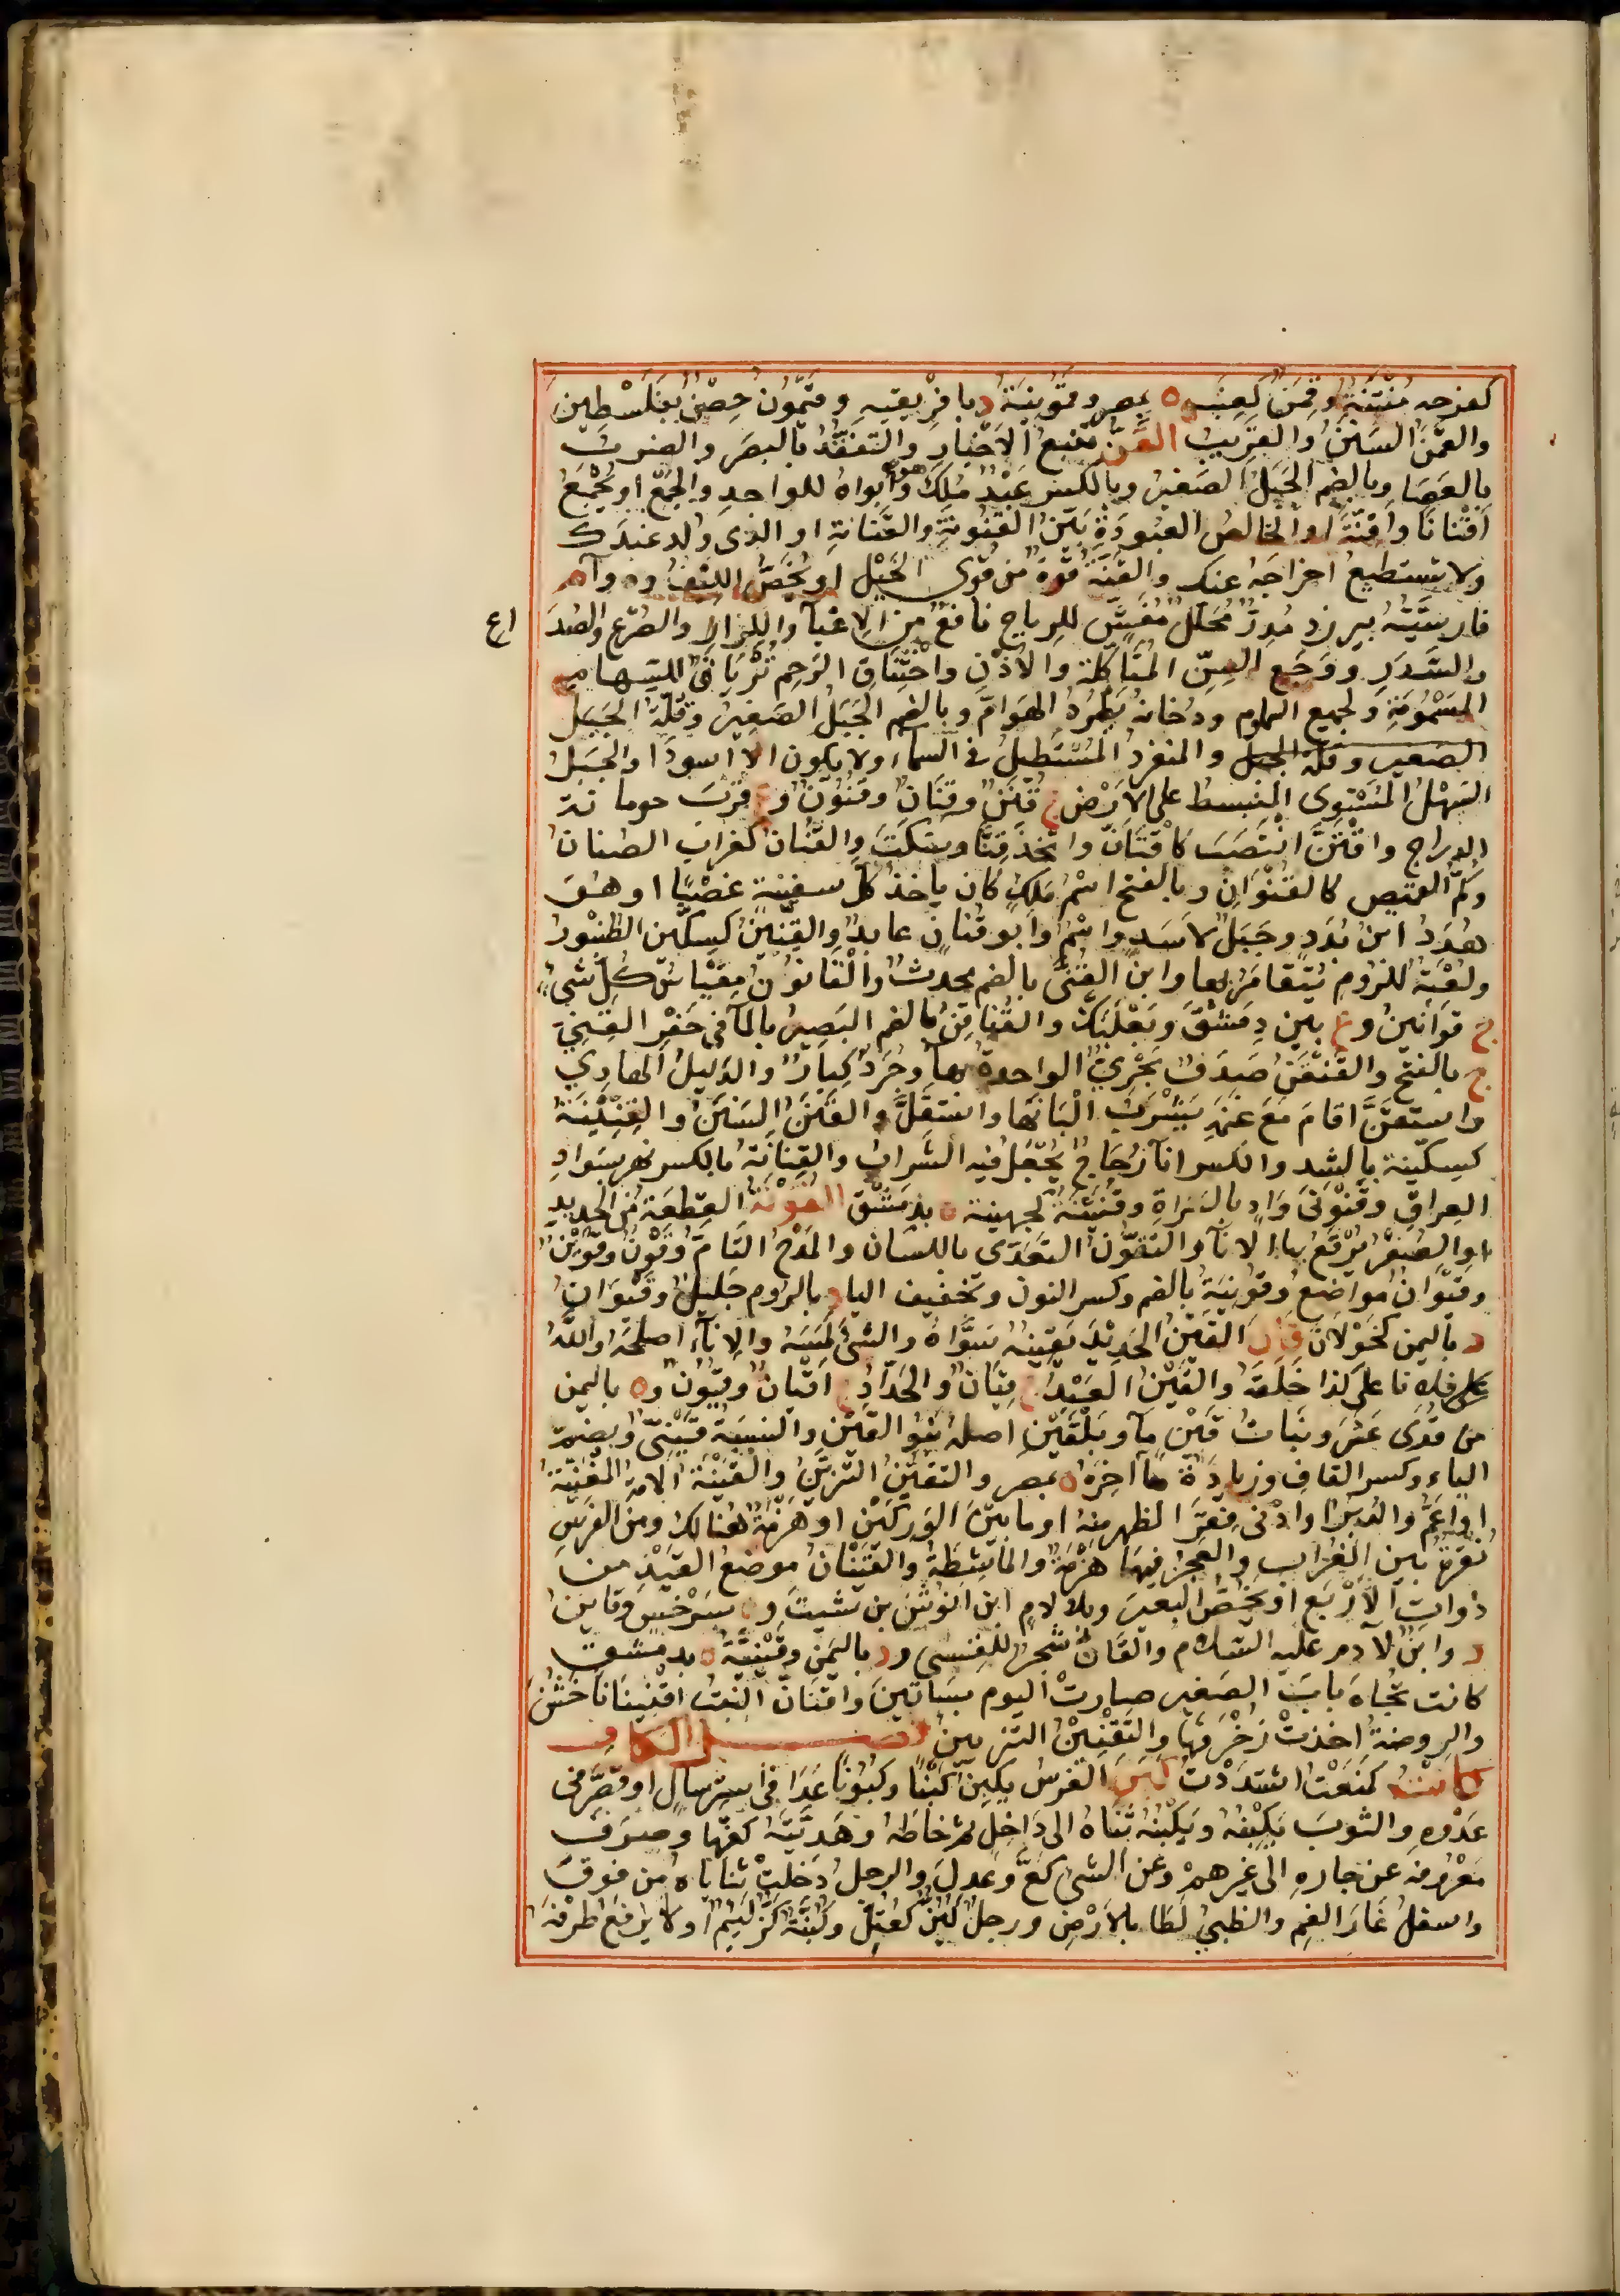 كفرحه مُنْتِنَةٌ وقِمَنٌ كعِنَبٍ ه بمصر وقَمُونِيَةُ د بافريقيه وقَمُّونُ حِصْنٌ بِفَلَسْطِينَ
والقَمَنُ السَنَنُ والقريبُ القَنُّ تتبع الاخبار والتفقد بالبصَر والضرب
بالعَصَا وبالضم الجَبَلُ الصَغيرُ وبالكسر عَبْدٌ مُلِكَ هو وابواه للواحدِ والجمْع او يُجْمَعُ
اقْنانًا واَقِنَّةً او الخالصُ العبودَةِ بَيّنُ القُنُونَةِ والقَنانَةِ او الذى وُلد عندك
ولا تستطيعُ اخراجَهُ عنك والقِنَّةُ قُوَّةٌ من قُوى الحَبْلِ او يُخَصُّ الليف ود وآء م
فارسِيَّتُهُ بيرزد مُدِرٌّ مُحَلِّلٌ مُفِشٌّ للرياح نافعٌ من الاعْيآ والكزاز والصَرْع والصُدَ اع
والسَدَرِ ووَجَع السِنّ المتاكلة والاُذُن واخْتِناق الرَحِم تُرْيَاقٌ للسهام
المَسْمُومَةِ ولجميع السموم ودخانُه يَطْرُدُ الهَوامَّ وبالضم الجَبَلُ الصَغيرُ وقُلَّةُ الجَبَلِ
الصغير وقلة الجبل والمنفردُ المُسْتَطيلُ فى السمآء ولا يكون الا اسودَ او الجبَلُ
السَهْلُ المُسْتَوِى المنبسط على الارْض ج قُنَنٌ وقِنانٌ وقُنُونٌ و ع قُرْبَ حومانة
الدراج واقْتَنَّ انْتَصَبَ كاقْتَاَنَّ واتَّخَذَ قِنًّا وسَكَتَ والقُنَانُ كغراب الصُنان
وكُمُّ القميص كالقُنْوَانِ وبالفتح اسْمُ مَلِكٍ كان ياخذُ كلَّ سفينة غصْبًا او هو
هُدَدُ ابن بُدَد وجَبَلٌ لاَسَد وابو قنان عابدٌ والقِنِّينُ كسِكّين الطُنْبُورُ
ولُعْبَةٌ للرُوم يُتَقامَرُ بها وابن القُنِّى بالضم محدثٌ والقانُون مِقْياسُ كل شىء
ج قوانينُ و ع بين دِمَشْقَ وبَعْلَبَكَّ والقُناقِنُ بالضم البَصيرُ بالمآ فى حَفْر القُنِىّ
ج بالفتح والقِنْقِنُ صَدَفٌ بَحْرِىٌّ الواحدة بهآ وجُرَذٌ كِبارٌ والدليلُ الهادى
واستقَنَّ اقامَ مَعَ غَنَمِه يَشْرَبُ اَلْبَانَها واستقلَّ والقَنَنُ السَنَنُ والقِنِّينَةُ
كسِكّينة بالشد والكسر انآ زُجاجٍ يُجْعَلُ فيه الشرابُ والقِنانَةُ بالكسر نهر بسَوادِ
العِراق وقَنَوْنَى وَادٍ بالسَرَاةِ وقُنَيْنَةُ كجهينة ه بدِمَشْقَ القَوْنَةُ القِطعَةُ من الحديد
او الصُفْر يُرْقَعُ بها الانآ والتَقَوُّنُ التَعَدّى باللسان والمَدْحُ التَامُّ وقَوْنٌ وقُوَيْنٌ
وقَوَّانٌ مَواضعُ وقُونِيَةُ بالضم وكسر النون وتخفيف اليا د بالروم جليلٌ وقَيْوَانُ
د باليمن كخَوْلانَ قَانَ القَيْنُ الحَديدَ يقينُه سَوَّاهُ والشىْ لمَّهُ والاِناءَ اصلحهُ واللهُ
فلانا على كذا خَلَقَهُ والقَيْنُ العَبْدُ ج قِيَانٌ والحَدّادُ ج اقْيَانٌ وقُيُونٌ و ه باليمن
من قُرَى عَثَّرَ وبَنَاتُ قَيْنٍ مآ وبَلْقَيْنِ اصله بَنُو القَيْنِ والنسبَةُ قَيْنِىٌّ وبضمّ
الباء وكسر القاف وزيادة ها آخره ه بمصر والتقَيُّنُ التزيّنُ والقَيْنَةُ الامة المغنّيَةُ
او اَعَمُّ والدُبُرُ او ادْنَى فِقَر الظهر منه او ما بين الوَرِكَيْن او هَزْمَةٌ هُنالك ومن الفَرَس
نُقْرَةٌ بين الغُراب والعَجُز فيها هَزْمَةٌ والماشِطَةُ والقَيْنَانُ موضعُ القَيْد من
ذواتِ الاَرْبَع او يَخُصُّ البعيرَ وبلا لام ابن انوشَ بن شيث و ه بسَرْخَسَ وقاين
د وابنٌ لآدم عليه السلام والقَانُ شجرٌ للقِسىّ و د باليمن وقَيْنِيَّةُ ه بدمشق
كانت تُجاهَ بابِ الصغير صارت اليوم بساتين واقْتَانَ النبت اقْتِيَانًا حَسُنَ
والروضةُ اخذتْ زُخْرُفَها والتَقْيينُ التزيينُ فصــل الكاف
كَأَنْتُ كمَنَعْتُ اشتددْتُ كَبَنَ الفرسُ يكبِنُ كَبْنًا وكُبُونًا عَدَا فى استرسال او قَصَّر فى
عدْوِه والثوبَ يَكْبِنُه ويَكْبُنُه ثَنَاهُ الى داخِل ثم خاطَهُ وهَدِيَّتَهُ كفّها وصرفَ
معْروفه عن جاره الى غيرهم وعن الشىْ كَعَّ وعدلَ والرجل دخلتْ ثناياهُ من فوقَ
واسفلَ غارَ الفم والظبىُ لَطَا بالارْض ورجلٌ كُبُنٌّ كعُتُلّ وكُبُنَّةٌ كَزٌّ لَئيمٌ او لا يرفعُ طرْفه